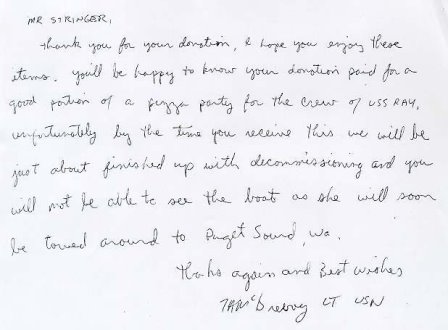 MR STRINGER,
thank you for your donation, I hope you enjoy these
items. you'll be happy to know your donation paid for a
good portion of a pizza party for the crew of USS RAY.
unfortunately by the time you receive this we will be
just about finished up with decommissioning and you
will not be able to see the boat as she will soon
be towed around to Puget Sound, Wa.
Thanks again and Best wishes
LT USN